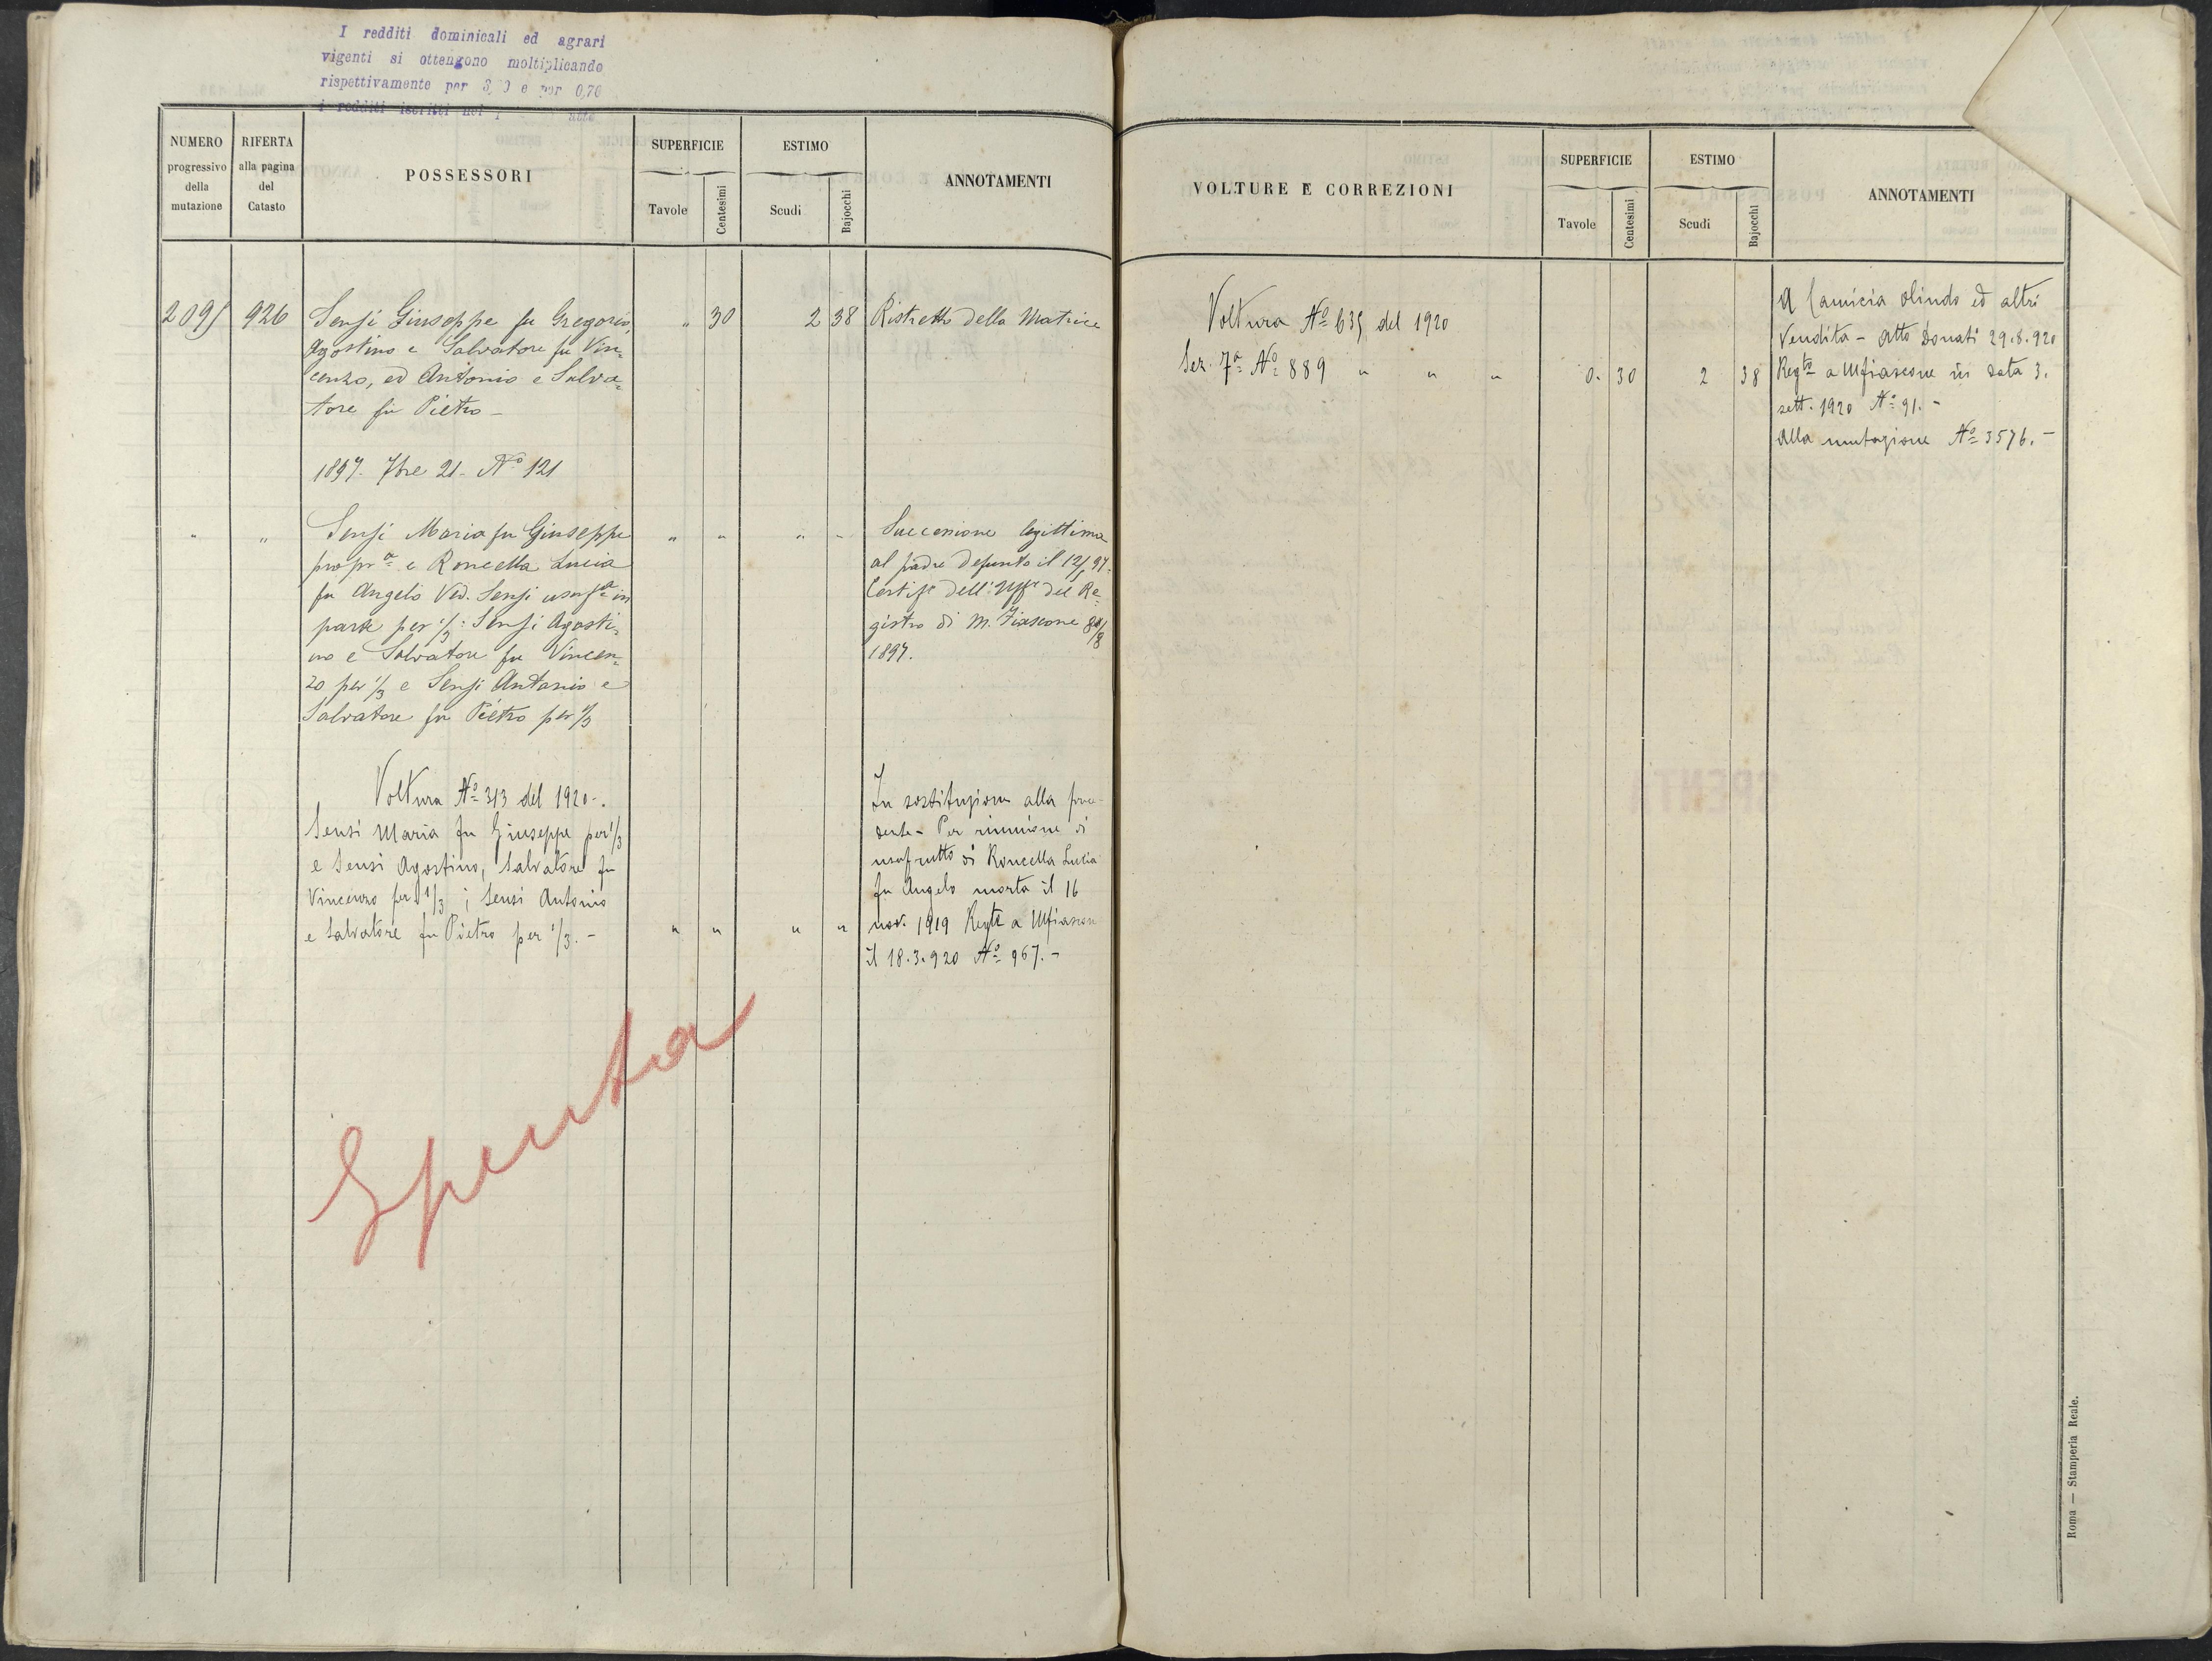 I redditi dominicali ed agrari
vigenti si ottengono moltiplicando
rispettivamente per e per 0,76
i redditi iscritti nel
NUMERO
progressivo
della
mutazione
RIFERTA
alla pagina
del
Catasto
POSSESSORI
SUPERFICIE
Tavole
Centesimi
ESTIMO
Scudi
Bajocchi
ANNOTAMENTI
2095 926 Sensi Giuseppe fu Gregorio, " 30 2 38 Ristretto della Matrice
Agostino e Salvatore fu Vin=
cenzo, ed Antonio e Salva=
tore fu Pietro -
1897. 7bre 21 - Nº 121
" " Sensi Maria fu Giuseppe " " " "
propr.a e Roncella Lucia
fu Angelo Ved. Sensi usuf.a in
parte per 1/3: Sensi Agosti=
no e Salvatore fu Vincen=
zo per 1/3 e Sensi Antonio e
Salvatore fu Pietro per 1/3
Successione legittima
al padre defunto il 97.
Certif.o dell'Uff.o del Re=
gistro di M. Fiascone
1897.
Voltura Nº 313 del 1920-.
Sensi Maria fu Giuseppe per 1/3
e Sensi Agostino, Salvatore fu
Vincenzo per 1/3; Sensi Antonio
e Salvatore fu Pietro per 1/3. - " " " "
In sostituzione alla prece-
dente - Per riunione di
usufrutto di Roncella Lucia
fu Angelo morta il 16
nov. 1919 Regta a Mfiascon
il 18.3.920 Nº 967. -
Spenta
VOLTURE E CORREZIONI
SUPERFICIE
Tavole
Centesimi
ESTIMO
Scudi
Bajocchi
ANNOTAMENTI
Voltura Nº 635 del 1920
Sez. 7ª Nº 889 " " " 0. 30 2 38
A Camicia Olindo ed altri
Vendita - Atto Donati 29.8.920
Regto a Mfiascone in data 3.
sett. 1920 Nº 91. -
Alla mutazione Nº 3576. -
Roma — Stamperia Reale.